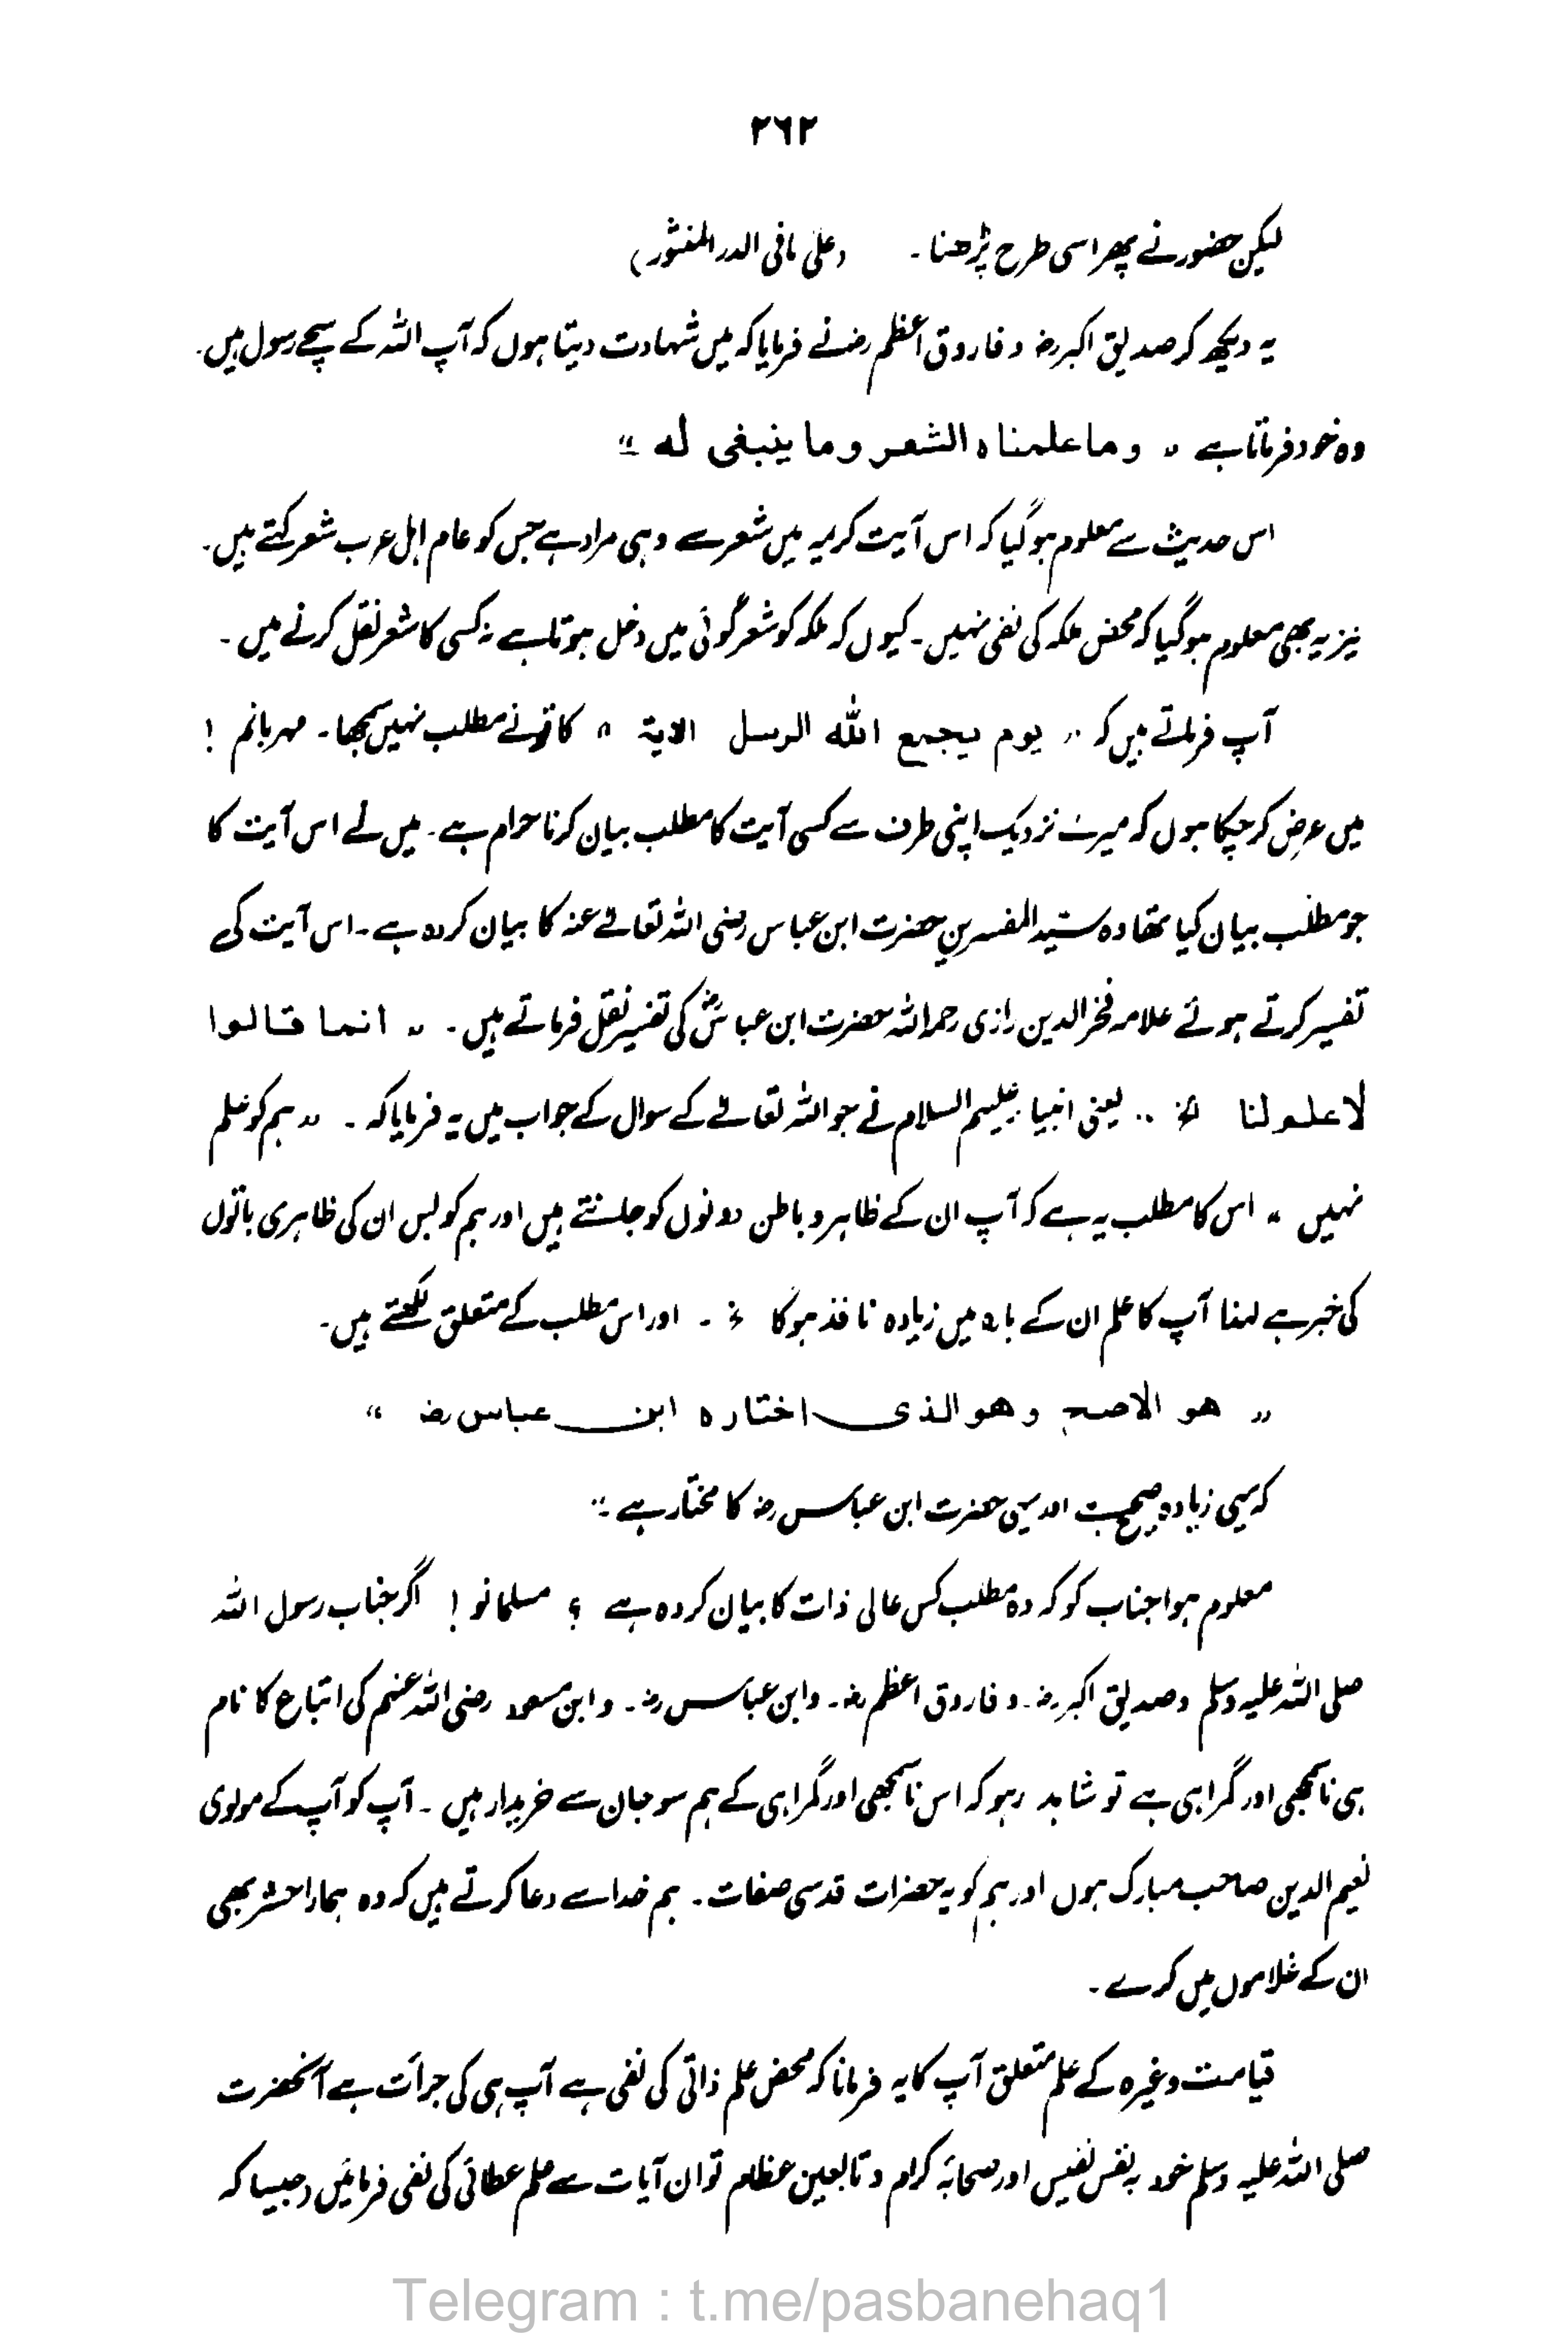 ۲۶۲
لیکن حضور نے پھر اسی طرح پڑھنا۔ (علی مافی الدر المنثور)
یہ دیکھ کر صدیق اکبر رضؓ و فاروق اعظم رضؓ نے فرمایا کہ میں شہادت دیتا ہوں کہ آپ اللہ کے سچے رسول ہیں۔
وہ خود فرماتا ہے "وما علمناہ الشعر وما ینبغی لہ"
اس حدیث سے معلوم ہو گیا کہ اس آیت کریمہ میں شعر سے وہی مراد ہے جس کو عام اہل عرب شعر کہتے ہیں۔
نیز یہ بھی معلوم ہو گیا کہ محض ملکہ کی نفی نہیں۔ کیوں کہ ملکہ کو شعر گوئی میں دخل ہوتا ہے نہ کسی کا شعر نقل کرنے میں۔
آپ فرماتے ہیں کہ "یوم یجمع اللہ الرسل الایۃ" کا تو نے مطلب نہیں سمجھا۔ مہربانم !
میں عرض کر چکا ہوں کہ میرے نزدیک اپنی طرف سے کسی آیت کا مطلب بیان کرنا حرام ہے۔ میں نے اس آیت کا
جو مطلب بیان کیا تھا وہ سید المفسرین حضرت ابن عباس رضی اللہ تعالےٰ عنہ کا بیان کردہ ہے۔ اس آیت کی
تفسیر کرتے ہوئے علامہ فخر الدین رازی رحمہ اللہ حضرت ابن عباسؓ کی تفسیر نقل فرماتے ہیں۔ "انما قالوا
لا علم لنا الخ" یعنی انبیاء علیہم السلام نے جو اللہ تعالےٰ کے سوال کے جواب میں یہ فرمایا کہ۔ "ہم کو علم
نہیں" اس کا مطلب یہ ہے کہ آپ ان کے ظاہر و باطن دونوں کو جانتے ہیں اور ہم کو بس ان کی ظاہری باتوں
کی خبر ہے لہذا آپ کا علم ان کے بارہ میں زیادہ نافذ ہوگا الخ۔ اور اس مطلب کے متعلق لکھتے ہیں۔
"ھو الاصح وھو الذی اختارہ ابن عباس رضؓ"
کہ یہی زیادہ صحیح ہے اور یہی حضرت ابن عباس رضؓ کا مختار ہے"
معلوم ہوا جناب کو کہ وہ مطلب کس عالی ذات کا بیان کردہ ہے ؟ مسلمانو ! اگر جناب رسول اللہ
صلی اللہ علیہ وسلم و صدیق اکبر رضؓ۔ و فاروق اعظم رضؓ۔ وابن عباس رضؓ۔ وابن مسعود رضی اللہ عنہم کی اتباع کا نام
ہی ناسمجھی اور گمراہی ہے تو شاہد رہو کہ اس ناسمجھی اور گمراہی کے ہم سو جان سے خریدار ہیں۔ آپ کو آپ کے مولوی
نعیم الدین صاحب مبارک ہوں اور ہم کو یہ حضرات قدسی صفات۔ ہم خدا سے دعا کرتے ہیں کہ وہ ہمارا حشر بھی
ان کے غلاموں میں کرے۔
قیامت وغیرہ کے علم متعلق آپ کا یہ فرمانا کہ محض علم ذاتی کی نفی ہے آپ ہی کی جرأت ہے آنحضرت
صلی اللہ علیہ وسلم خود بہ نفس نفیس اور صحابہ کرام و تابعین عظام تو ان آیات سے علم عطائی کی نفی فرمائیں (جیسا کہ
Telegram : t.me/pasbanehaq1